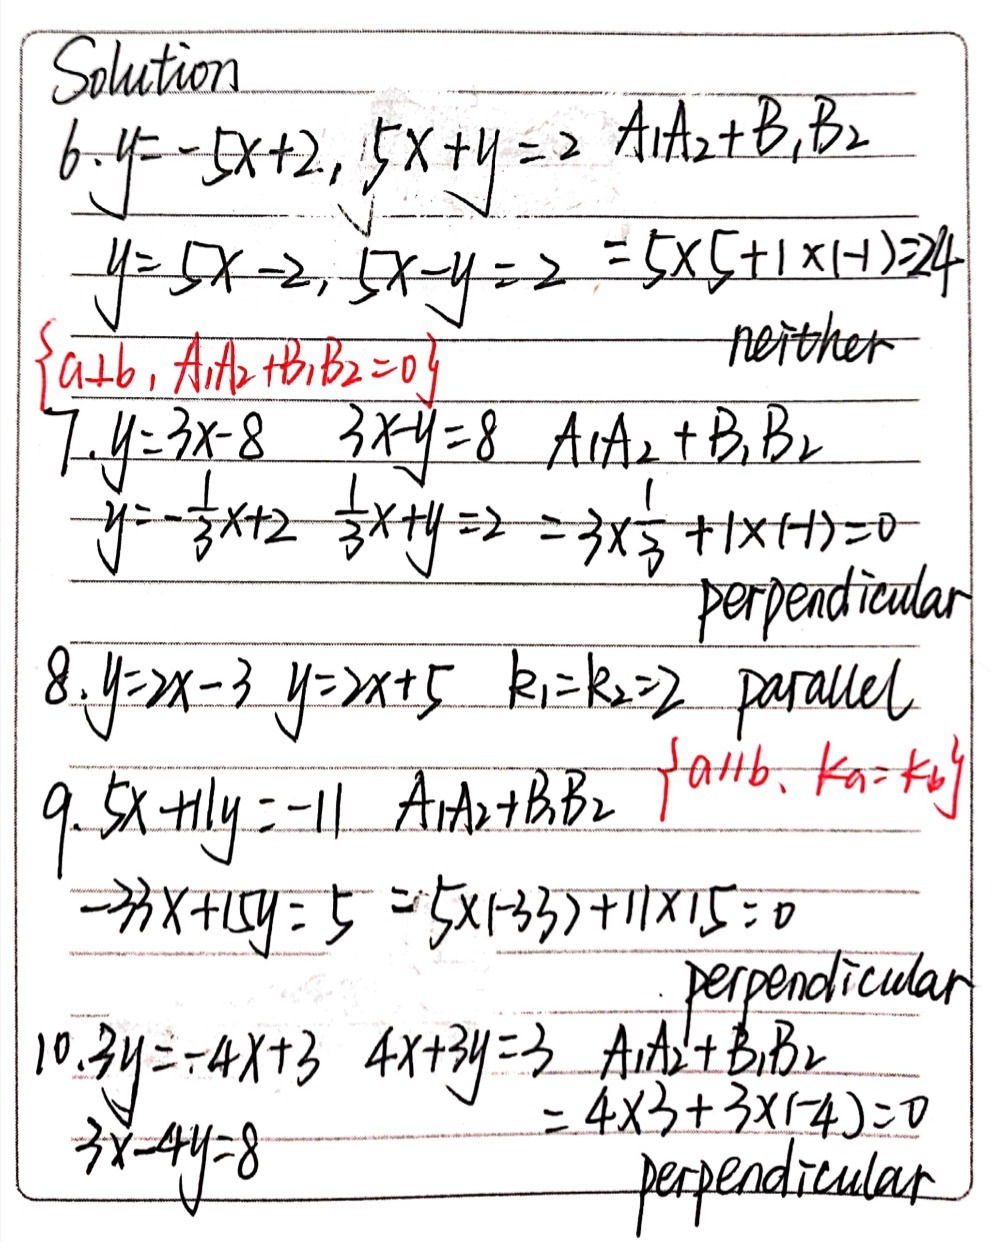 Solution
6. y=-5x+2, 5x+y=2 A₁A₂+B₁B₂
y=5x-2, 5x-y=2 =5×5+1×(-1)=24
neither
{a⊥b, A₁A₂+B₁B₂=0}
7. y=3x-8 3x-y=8 A₁A₂+B₁B₂
y=-1/3x+2 1/3x+y=2 =3×1/3+1×(-1)=0
perpendicular
8. y=2x-3 y=2x+5 k₁=k₂=2 parallel
{a//b, Ka=Kb}
9. 5x+11y=-11 A₁A₂+B₁B₂
-33x+15y=5 =5×(-33)+11×15=0
perpendicular
10. 3y=-4x+3 4x+3y=3 A₁A₂+B₁B₂
3x-4y=8 =4×3+3×(-4)=0
perpendicular